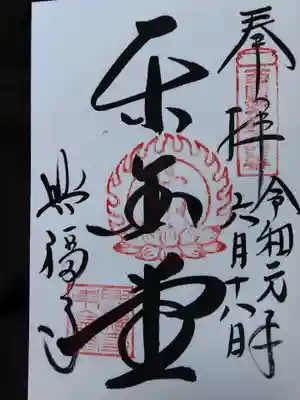 奉拝
令和元年
六月十八日
東金堂
興福寺